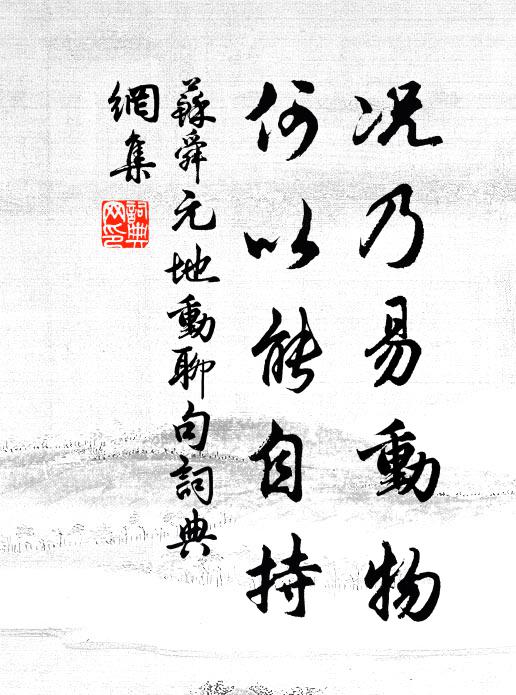 况乃易動物
何以能自持
蘇舜元地動聊句詞典
網集
詞典網印